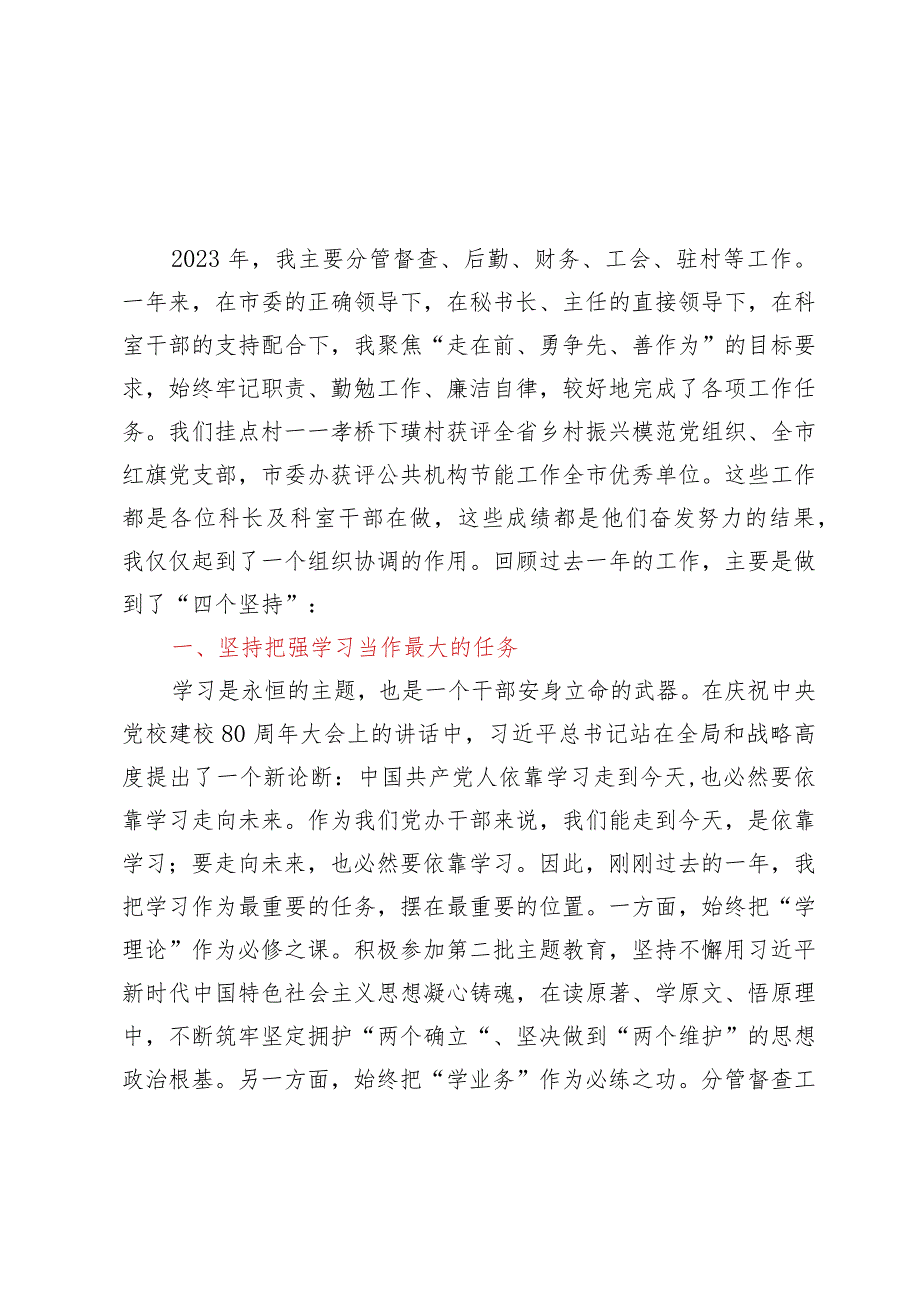 2023 年，我主要分管督查、后勤、财务、工会、驻村等工作。
一年来，在市委的正确领导下，在秘书长、主任的直接领导下，在科
室干部的支持配合下，我聚焦“走在前、勇争先、善作为”的目标要
求，始终牢记职责、勤勉工作、廉洁自律，较好地完成了各项工作任
务。我们挂点村一一孝桥下璜村获评全省乡村振兴模范党组织、全市
红旗党支部，市委办获评公共机构节能工作全市优秀单位。这些工作
都是各位科长及科室干部在做，这些成绩都是他们奋发努力的结果，
我仅仅起到了一个组织协调的作用。回顾过去一年的工作，主要是做
到了“四个坚持”：
一、坚持把强学习当作最大的任务
学习是永恒的主题，也是一个干部安身立命的武器。在庆祝中央
党校建校 80 周年大会上的讲话中，习近平总书记站在全局和战略高
度提出了一个新论断：中国共产党人依靠学习走到今天,也必然要依
靠学习走向未来。作为我们党办干部来说，我们能走到今天，是依靠
学习；要走向未来，也必然要依靠学习。因此，刚刚过去的一年，我
把学习作为最重要的任务，摆在最重要的位置。一方面，始终把“学
理论”作为必修之课。积极参加第二批主题教育，坚持不懈用习近平
新时代中国特色社会主义思想凝心铸魂，在读原著、学原文、悟原理
中，不断筑牢坚定拥护“两个确立“、坚决做到“两个维护”的思想
政治根基。另一方面，始终把“学业务”作为必练之功。分管督查工